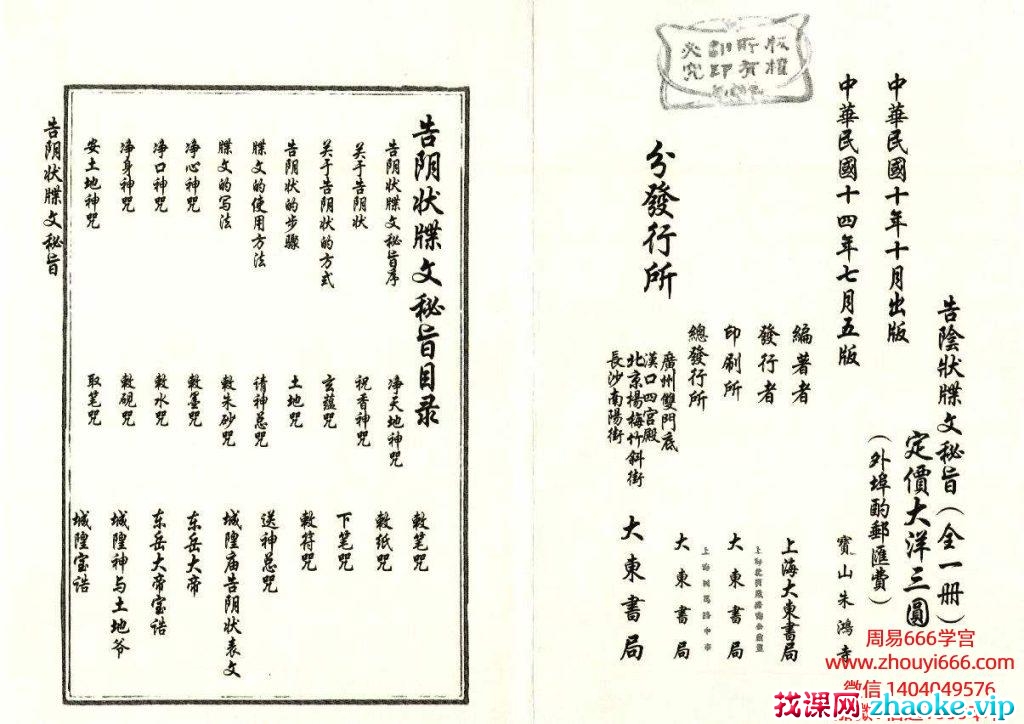 版權
所有
翻印
必究
中華民國十年十月出版
中華民國十四年七月五版
告陰狀牒文秘旨（全一册）
定價大洋三圓
（外埠酌郵匯費）
編著者
寶山朱鴻壽
發行者
上海大東書局
印刷所
大東書局
總發行所
大東書局
分發行所
廣州雙門底
漢口四宮殿
北京楊梅竹斜街
長沙南陽街
大東書局
告阴状牒文秘旨目录
告阴状牒文秘旨序
关于告阴状
关于告阴状的方式
告阴状的步骤
牒文的使用方法
牒文的写法
净心神咒
净口神咒
净身神咒
安土地神咒
净天地神咒
祝香神咒
玄蕴咒
土地咒
请神总咒
敕朱砂咒
敕墨咒
敕水咒
敕砚咒
取笔咒
敕笔咒
敕纸咒
下笔咒
敕符咒
送神总咒
城隍庙告阴状表文
东岳大帝
东岳大帝宝诰
城隍神与土地爷
城隍宝诰
告阴状牒文秘旨
周易666学宫
www.zhouyi666.com
微信 1404049576
找课网zhaoke.vip